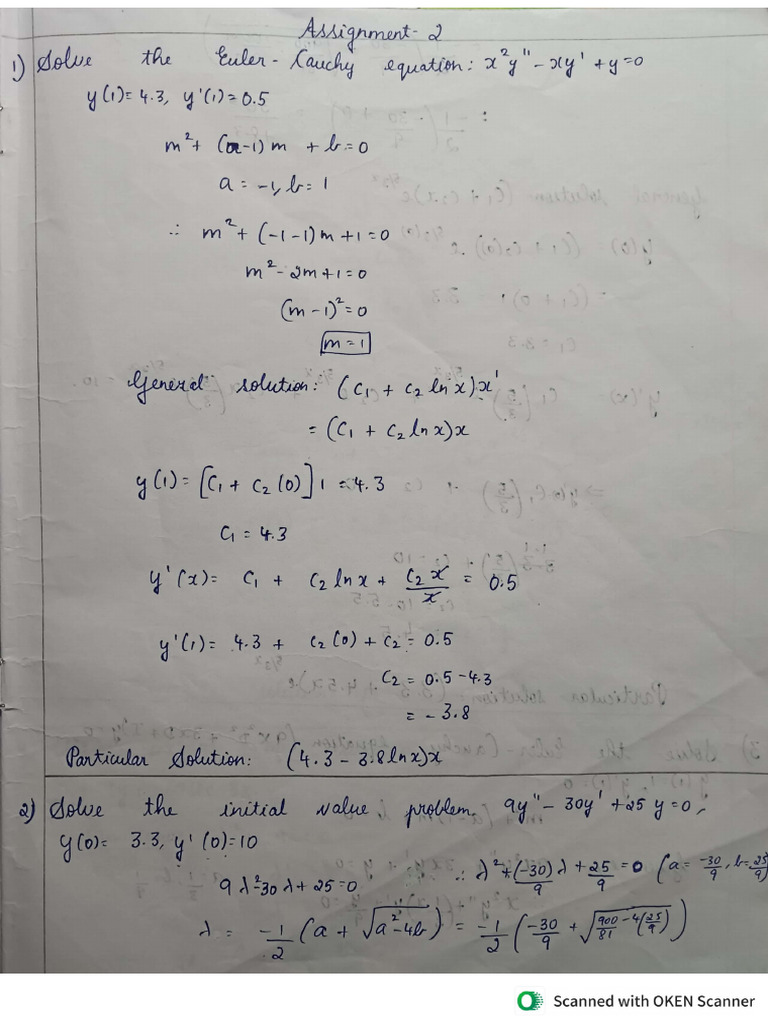 Assignment-2
1) Solve the Euler-Cauchy equation: x²y'' - xy' + y=0
y(1)= 4.3, y'(1)=0.5
m² + (a-1)m + b=0
a = -1, b= 1
∴ m² + (-1-1)m +1=0
m² - 2m+1=0
(m-1)²=0
m=1
General solution: (C₁ + C₂ ln x) x¹
= (C₁ + C₂ ln x) x
y(1)= [C₁ + C₂ (0)] 1 = 4.3
C₁ = 4.3
y'(x)= C₁ + C₂ ln x + C₂ x / x = 0.5
y'(1)= 4.3 + C₂ (0) + C₂ = 0.5
C₂ = 0.5 - 4.3
= - 3.8
Particular Solution: (4.3 - 3.8 ln x) x
2) Solve the initial value problem, 9y'' - 30y' + 25 y=0,
y(0)= 3.3, y'(0)=10
9λ²-30λ + 25=0 ∴ λ² + (-30)/9 λ + 25/9 = 0 (a= -30/9, b= 25/9
λ = -1/2 (a + √(a²-4b)) = -1/2 (-30/9 + √(900/81 - 4(25/9)))
Scanned with OKEN Scanner